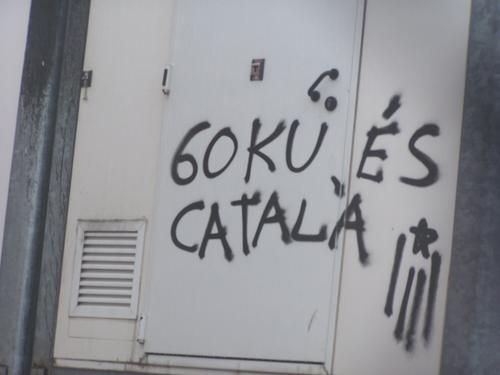 GOKU ÉS
CATALÀ